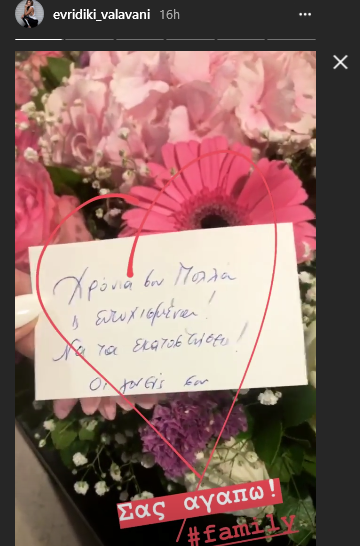 evridiki_valavani 16h
Χρόνια σου Πολλά
& ευτυχισμένα!
Να τα εκατοστήσεις!
Οι γονείς σου
Σας αγαπώ!
#family